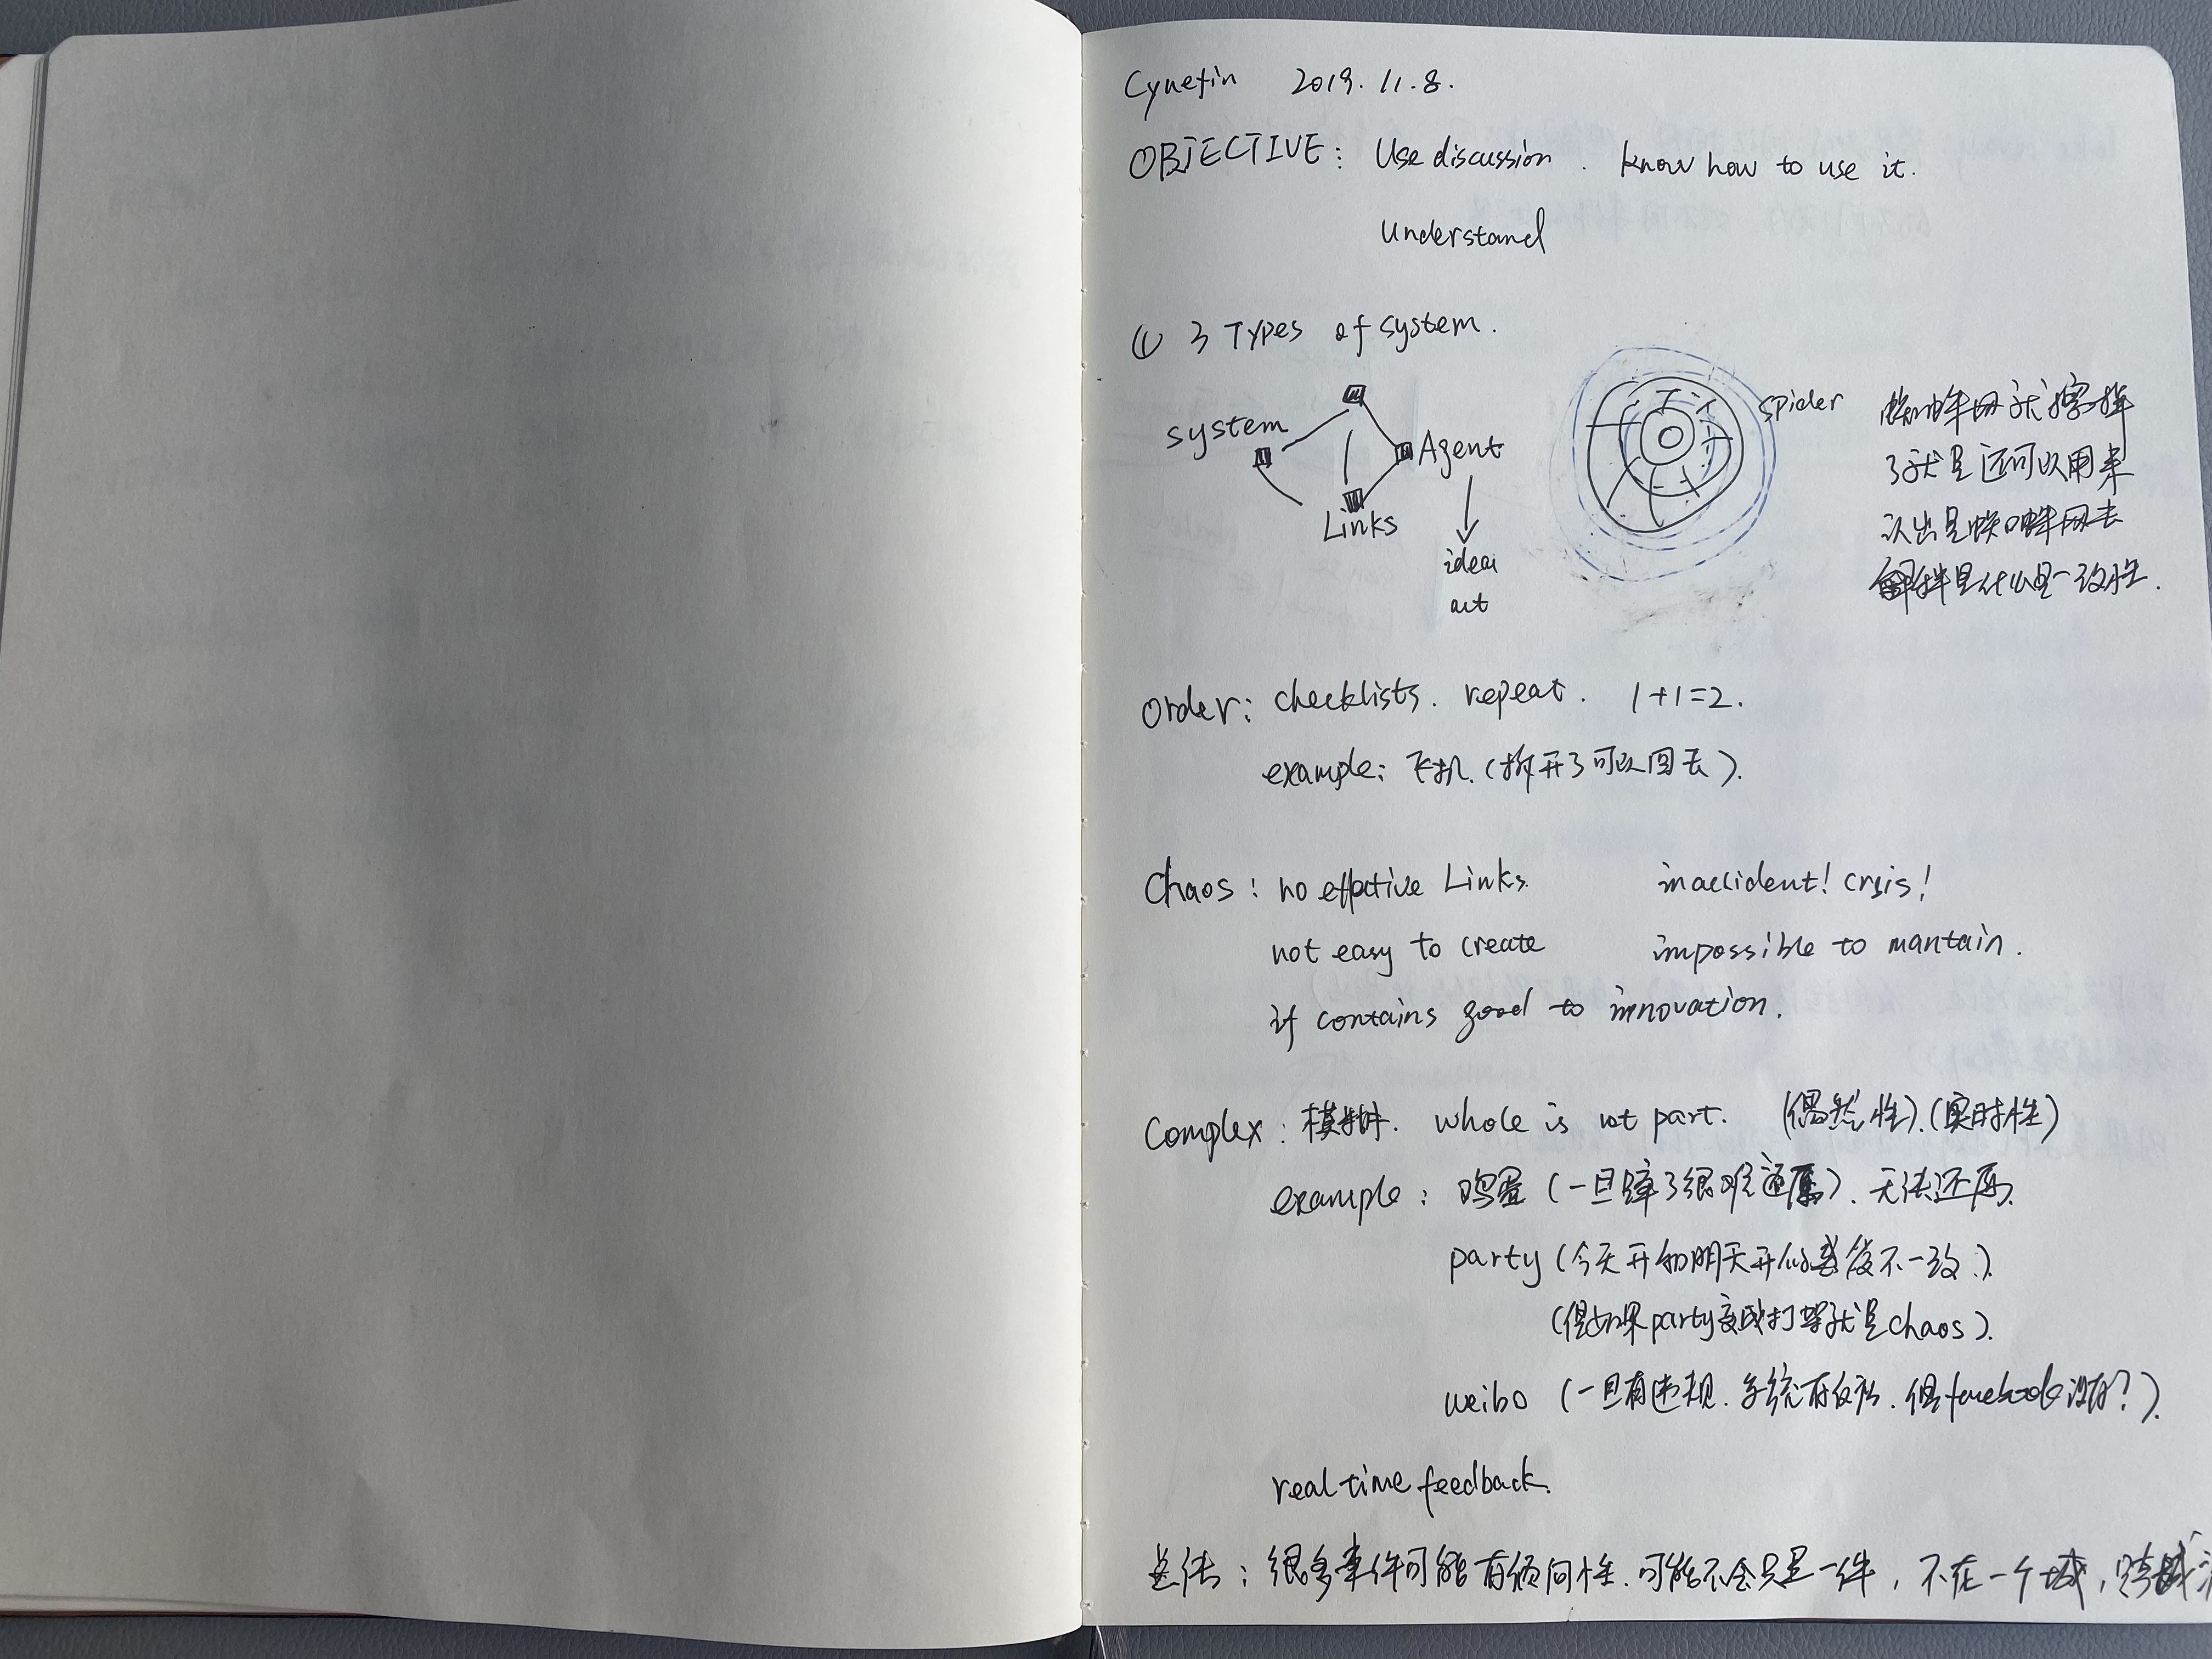 Cynefin 2019.11.8.
OBJECTIVE: Use discussion. Know how to use it.
Understand
① 3 Types of system.
system
Agent
Links
idea
act
spider
蜘蛛网就
了就是还可以用来
是蜘蛛网去
是什么是一致性.
Order: checklists. repeat. 1+1=2.
example: 飞机.(拆开了可以回去).
Chaos: no effective Links. in accident! crsis!
not easy to create impossible to mantain.
if contains good to innovation.
Complex: whole is not part. (偶然性).(实时性)
example: 鸡蛋(一旦碎了很难还原). 无法还原.
party(今天开和明天开不一致.).
(但如果party变成打架就是chaos).
weibo (一旦有违规. 系统有反应. 但facebook没有?).
real time feedback.
总结: 很多事件可能有倾向性. 可能不会只是一件, 不在一个域, 跨域